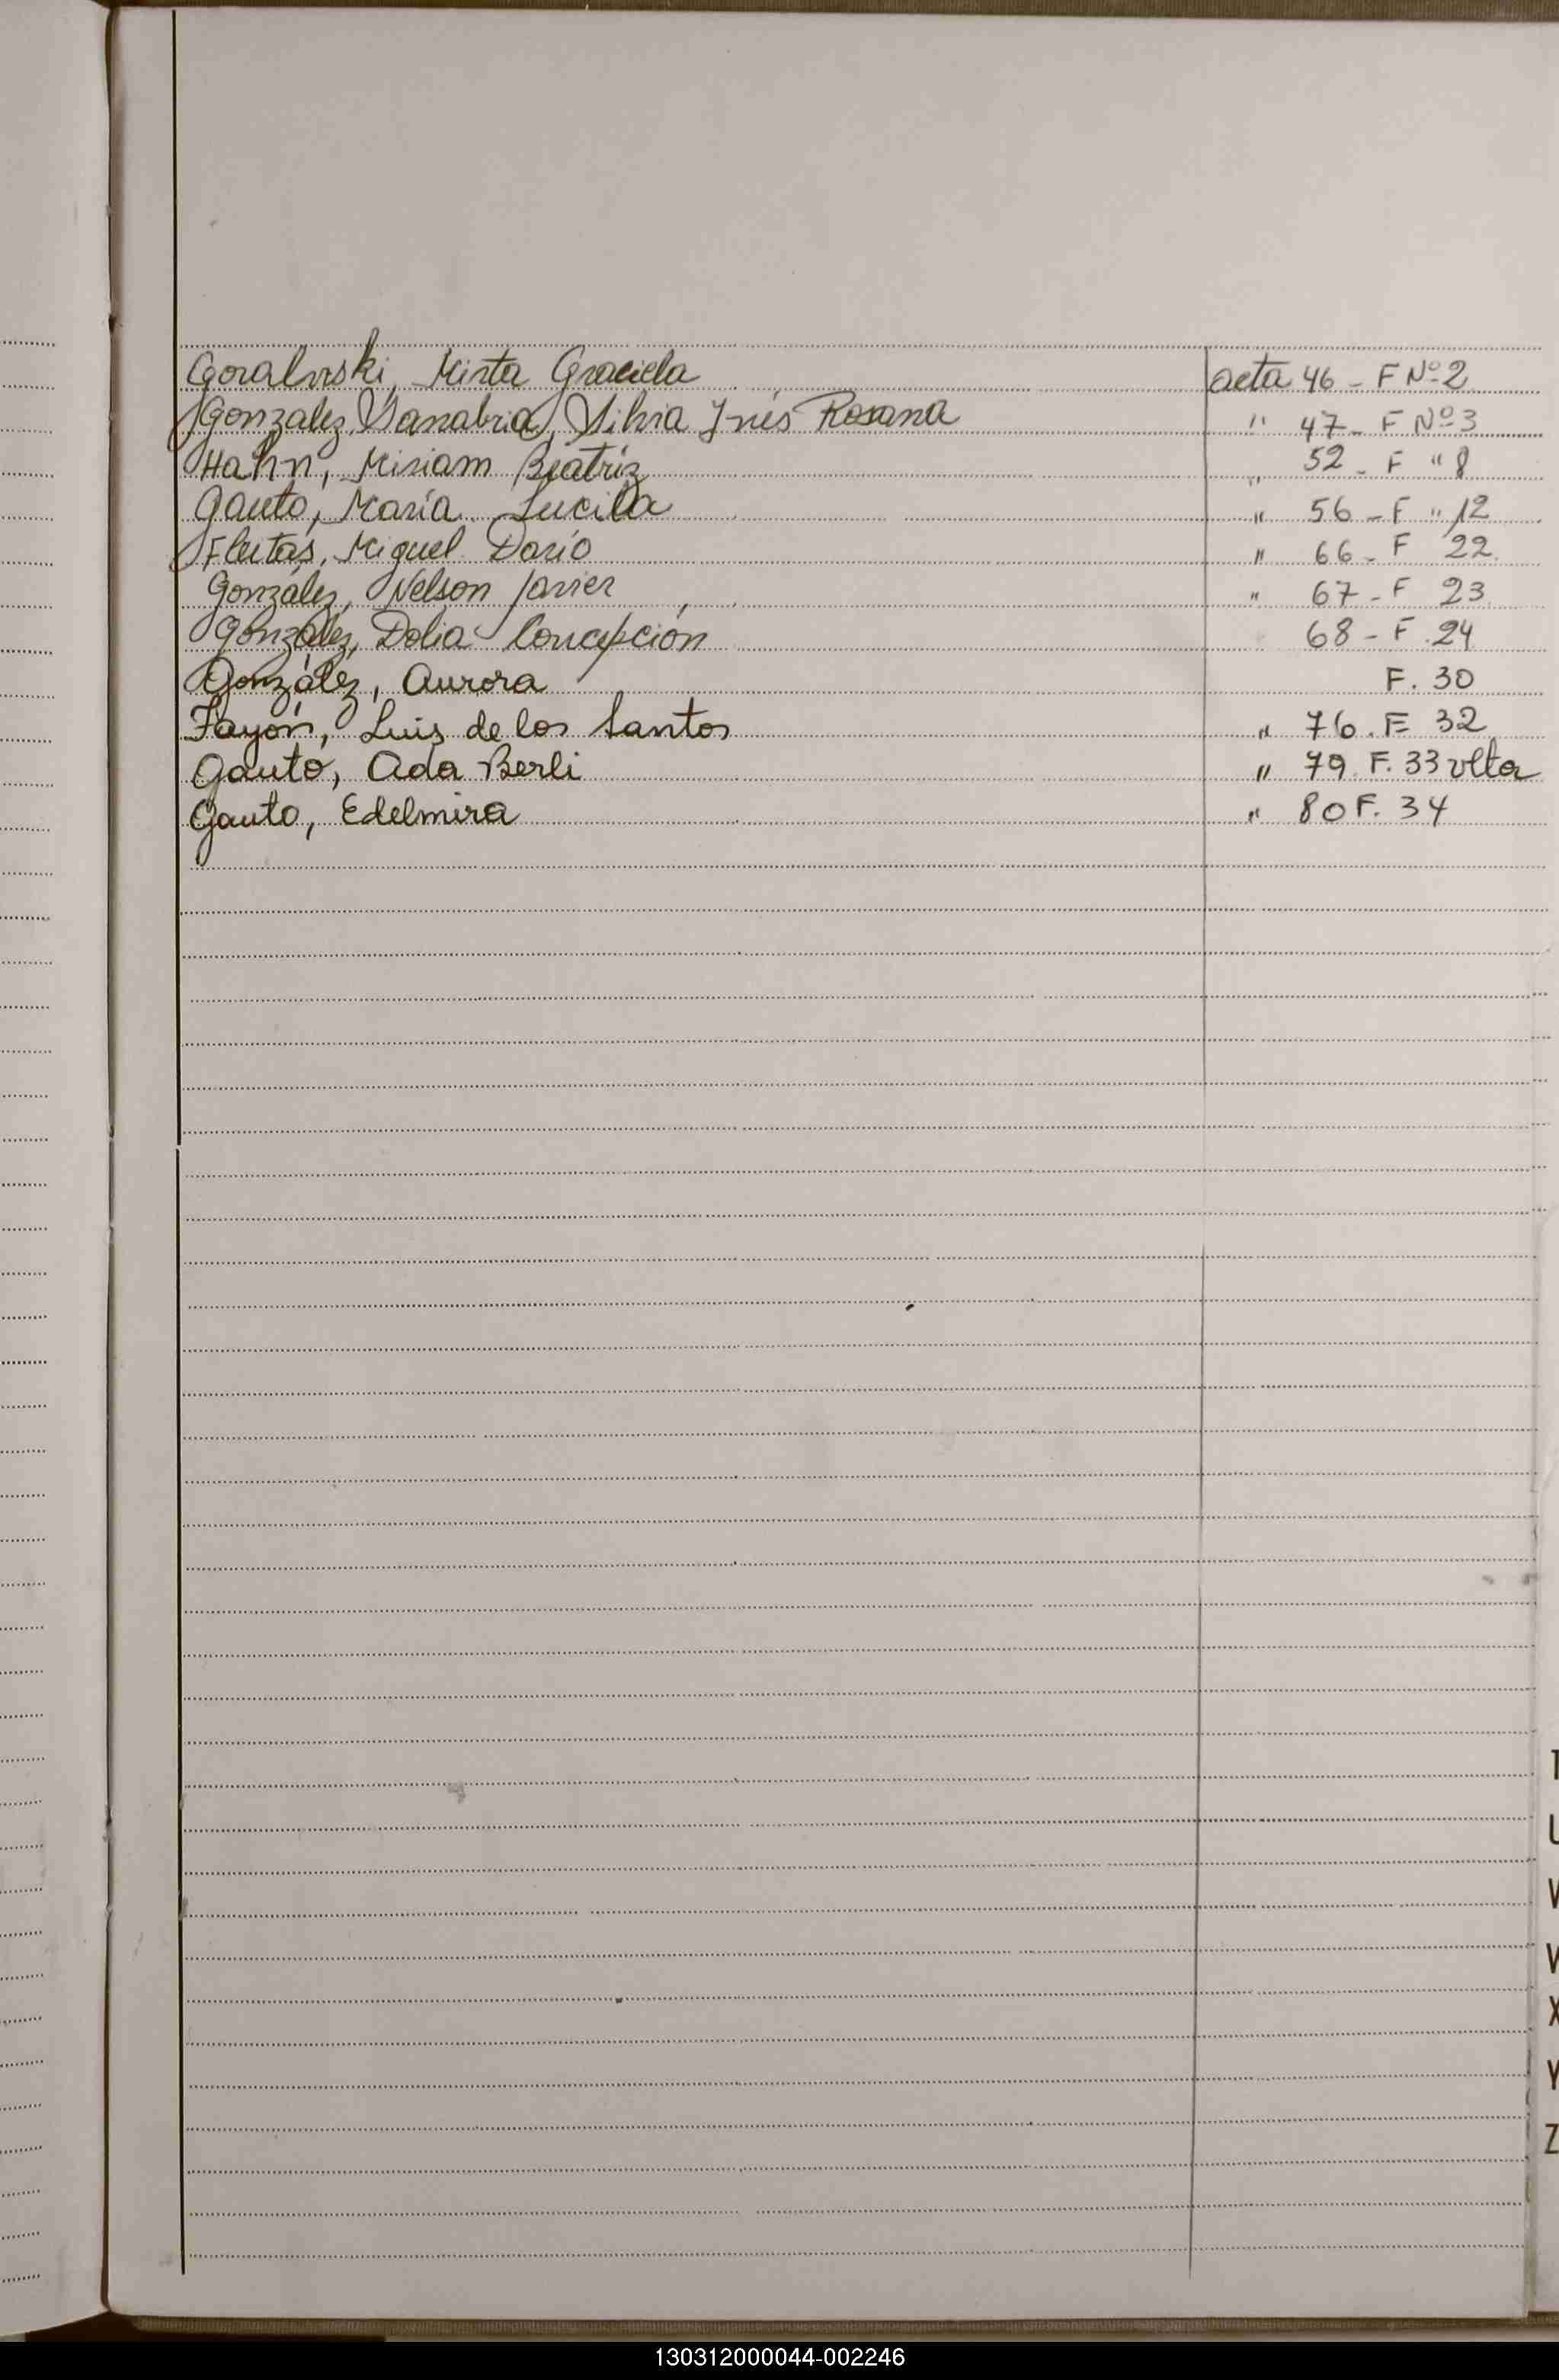 Goralvski, Mirta Graciela acta 46 - F Nº 2
Gonzalez Sanabria, Silvia Inés Rosana " 47 - F Nº 3
Hahn, Miriam Beatríz " 52 - F " 8
Gauto, María Lucila " 56 - F " 12
Fleitas, Miguel Darío " 66 - F 22
González, Nelson Javier " 67 - F 23
González, Dolia Concepción 68 - F. 24
González, Aurora F. 30
Fayón, Luis de los Santos " 76. F. 32
Gauto, Ada Berli " 79. F. 33 vlta
Gauto, Edelmira " 80 F. 34
U
V
W
X
Y
Z
130312000044-002246